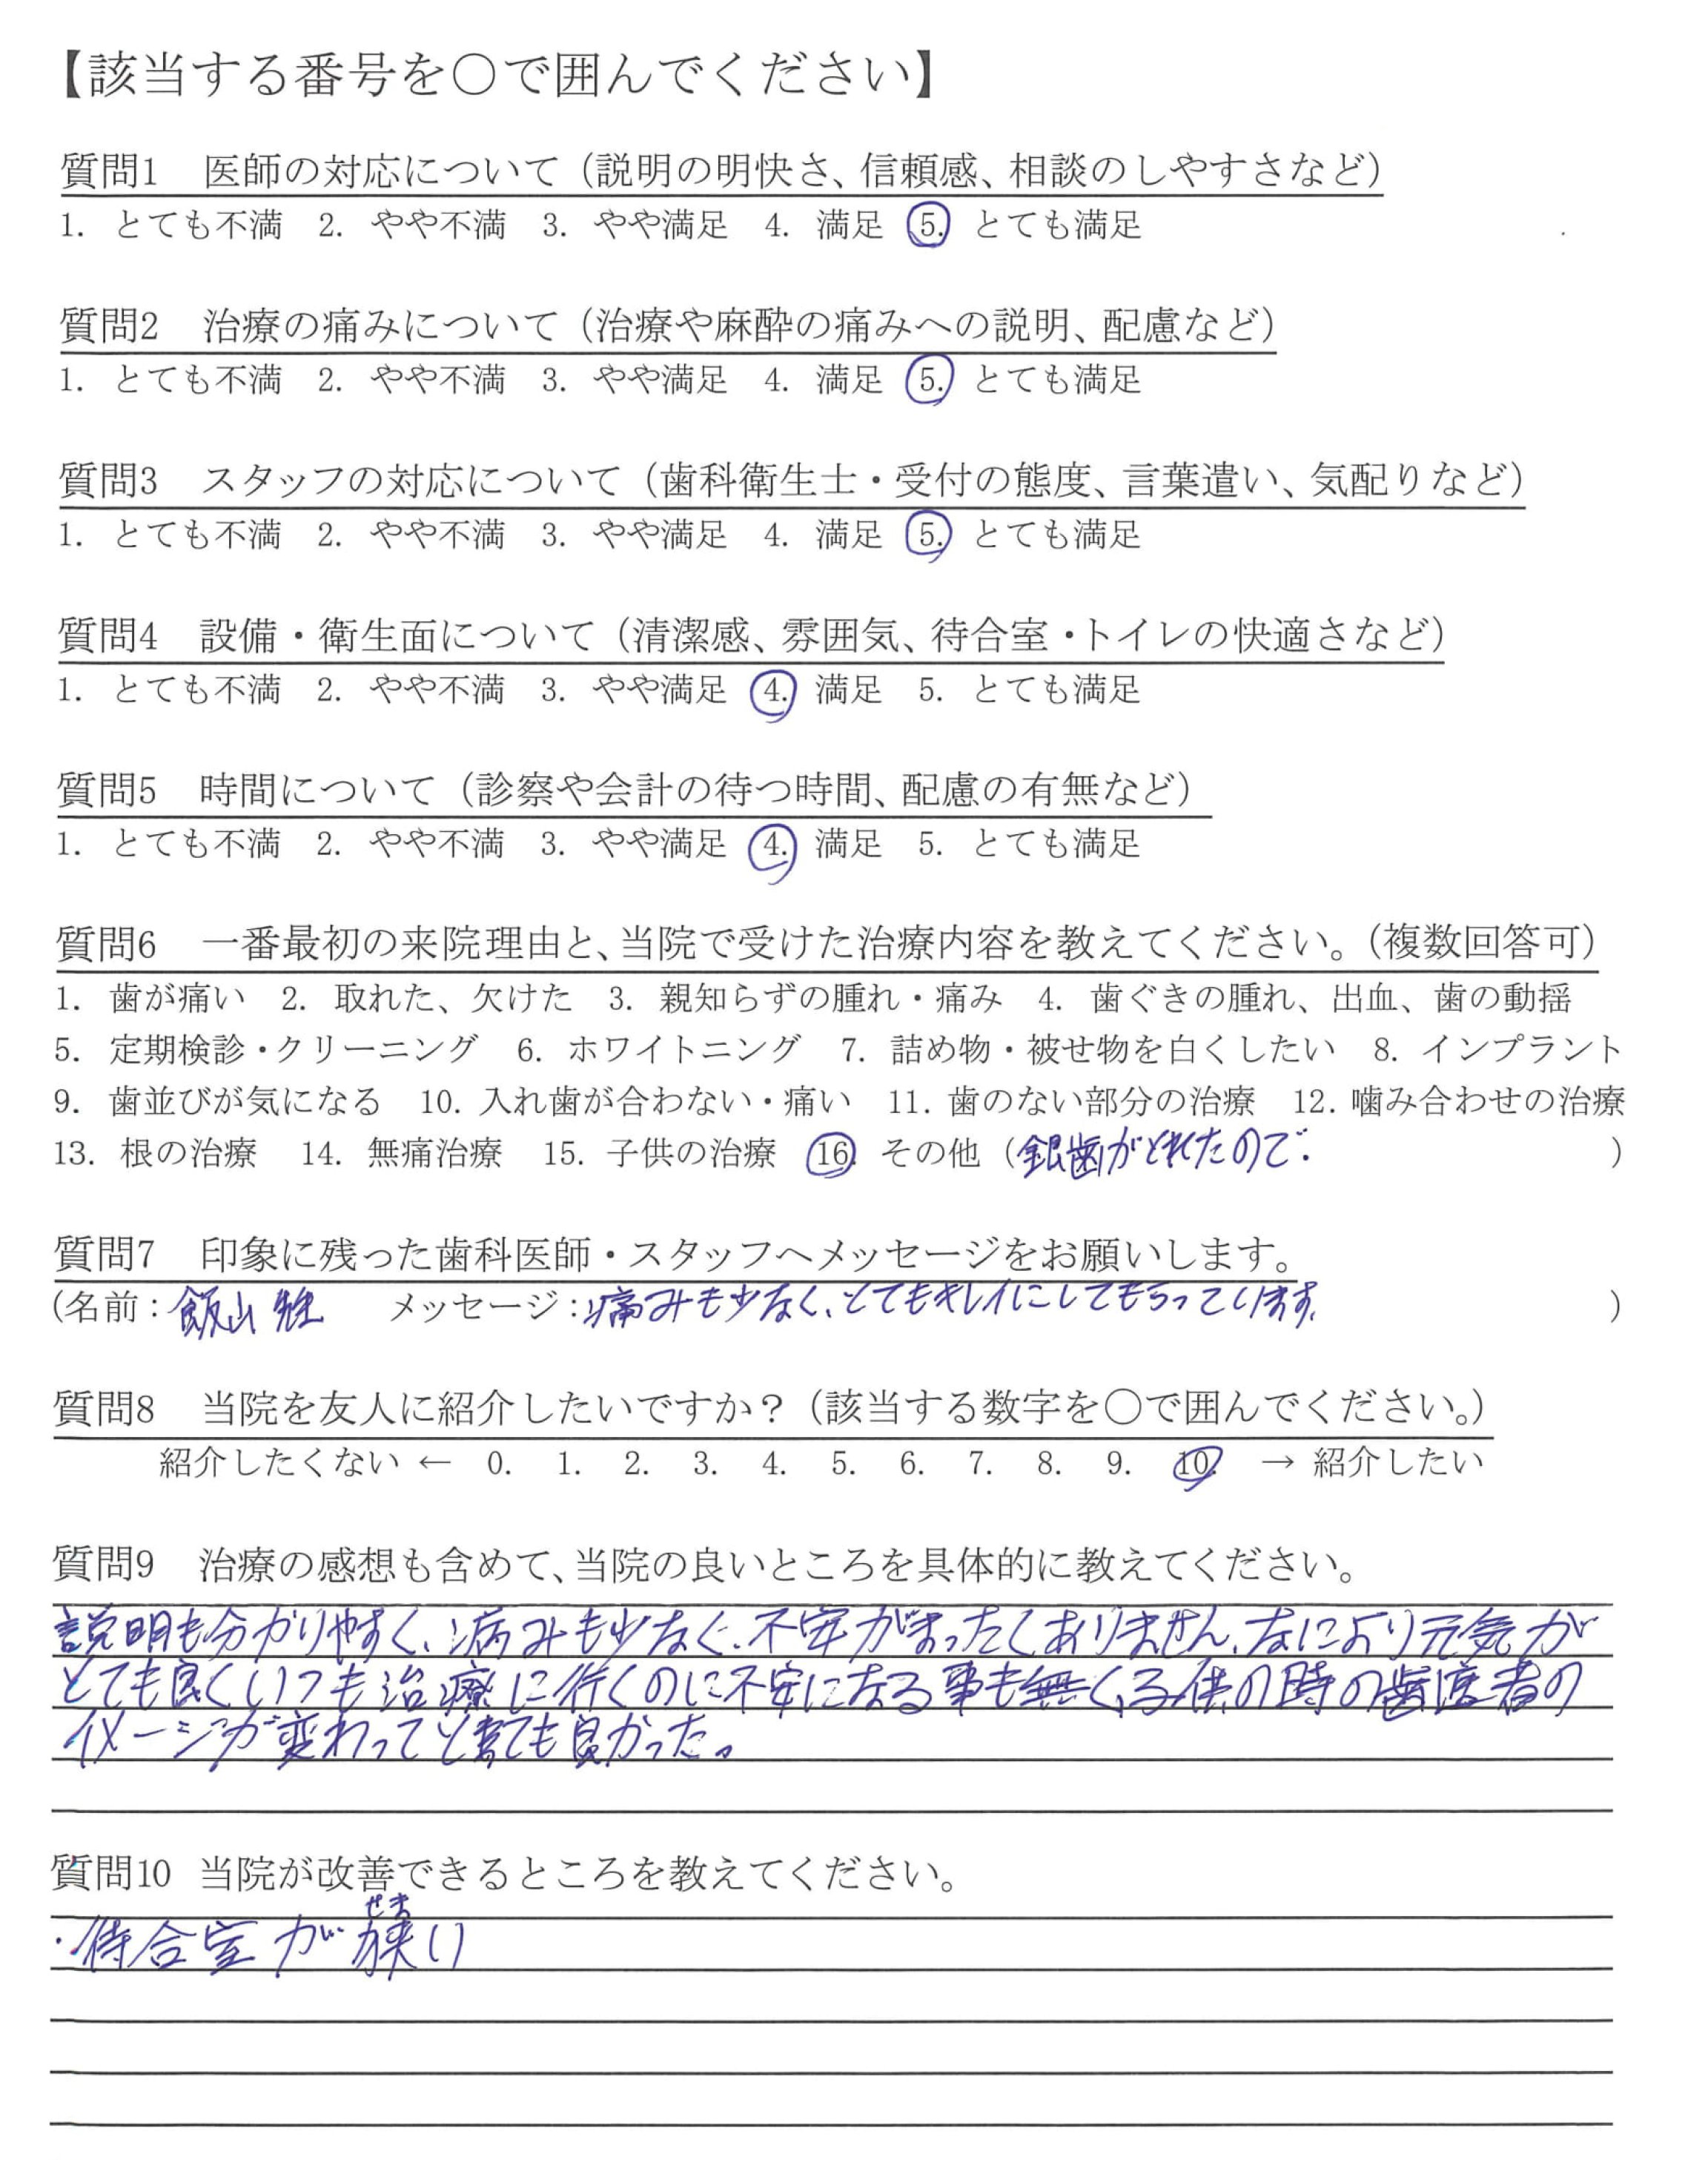 【該当する番号を○で囲んでください】
質問1　医師の対応について（説明の明快さ、信頼感、相談のしやすさなど）
1. とても不満　2. やや不満　3. やや満足　4. 満足　5. とても満足
質問2　治療の痛みについて（治療や麻酔の痛みへの説明、配慮など）
1. とても不満　2. やや不満　3. やや満足　4. 満足　5. とても満足
質問3　スタッフの対応について（歯科衛生士・受付の態度、言葉遣い、気配りなど）
1. とても不満　2. やや不満　3. やや満足　4. 満足　5. とても満足
質問4　設備・衛生面について（清潔感、雰囲気、待合室・トイレの快適さなど）
1. とても不満　2. やや不満　3. やや満足　4. 満足　5. とても満足
質問5　時間について（診察や会計の待つ時間、配慮の有無など）
1. とても不満　2. やや不満　3. やや満足　4. 満足　5. とても満足
質問6　一番最初の来院理由と、当院で受けた治療内容を教えてください。（複数回答可）
1. 歯が痛い　2. 取れた、欠けた　3. 親知らずの腫れ・痛み　4. 歯ぐきの腫れ、出血、歯の動揺
5. 定期検診・クリーニング　6. ホワイトニング　7. 詰め物・被せ物を白くしたい　8. インプラント
9. 歯並びが気になる　10. 入れ歯が合わない・痛い　11. 歯のない部分の治療　12. 噛み合わせの治療
13. 根の治療　14. 無痛治療　15. 子供の治療　16. その他（銀歯がとれたので.　）
質問7　印象に残った歯科医師・スタッフへメッセージをお願いします。
（名前：飯山 先生　メッセージ：痛みも少なく、とてもキレイにしてもらっています。　）
質問8　当院を友人に紹介したいですか？（該当する数字を○で囲んでください。）
紹介したくない ← 0. 1. 2. 3. 4. 5. 6. 7. 8. 9. 10. → 紹介したい
質問9　治療の感想も含めて、当院の良いところを具体的に教えてください。
説明も分かりやすく、痛みも少なく、不安がまったくありません、なにより元気が
とても良くいつも治療に行くのに不安になる事も無く、子供の時の歯医者の
イメージが変わってとても良かった。
質問10 当院が改善できるところを教えてください。
せま
・待合室が狭い